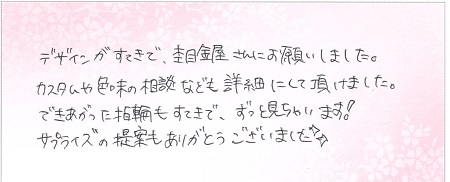 デザインがすてきで、杢目金屋さんにお願いしました。
カスタムや色味の相談なども詳細にして頂けました。
できあがった指輪もすてきで、ずっと見ちゃいます!
サプライズの提案もありがとうございました☆☆